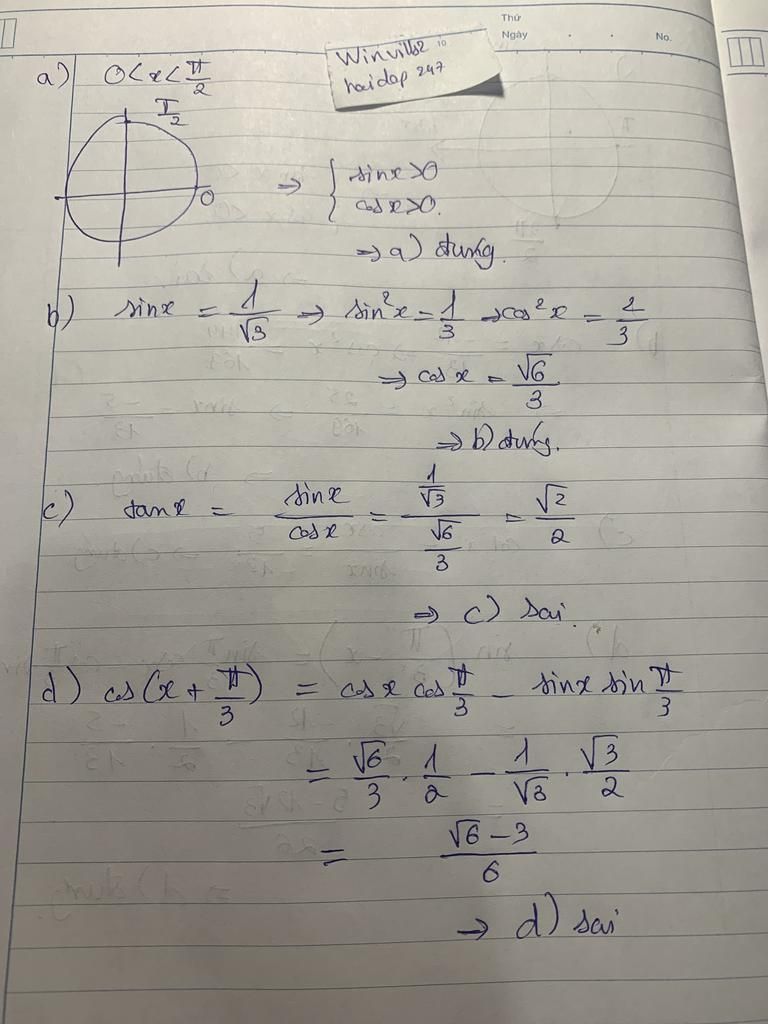 Thứ
Ngày . . No.
Winvills2 10
hoidap 247
a) 0 < x < π/2
π/2
0
⇒ { sinx > 0
cosx > 0.
⇒ a) đúng.
b) sinx = 1/√3 ⇒ sin²x = 1/3 ⇒ cos²x = 2/3
⇒ cosx = √6/3
⇒ b) đúng.
c) tanx = sinx/cosx = (1/√3)/(√6/3) = √2/2
⇒ c) sai.
d) cos(x + π/3) = cosx cos π/3 - sinx sin π/3
= √6/3 . 1/2 - 1/√3 . √3/2
= (√6 - 3)/6
→ d) sai